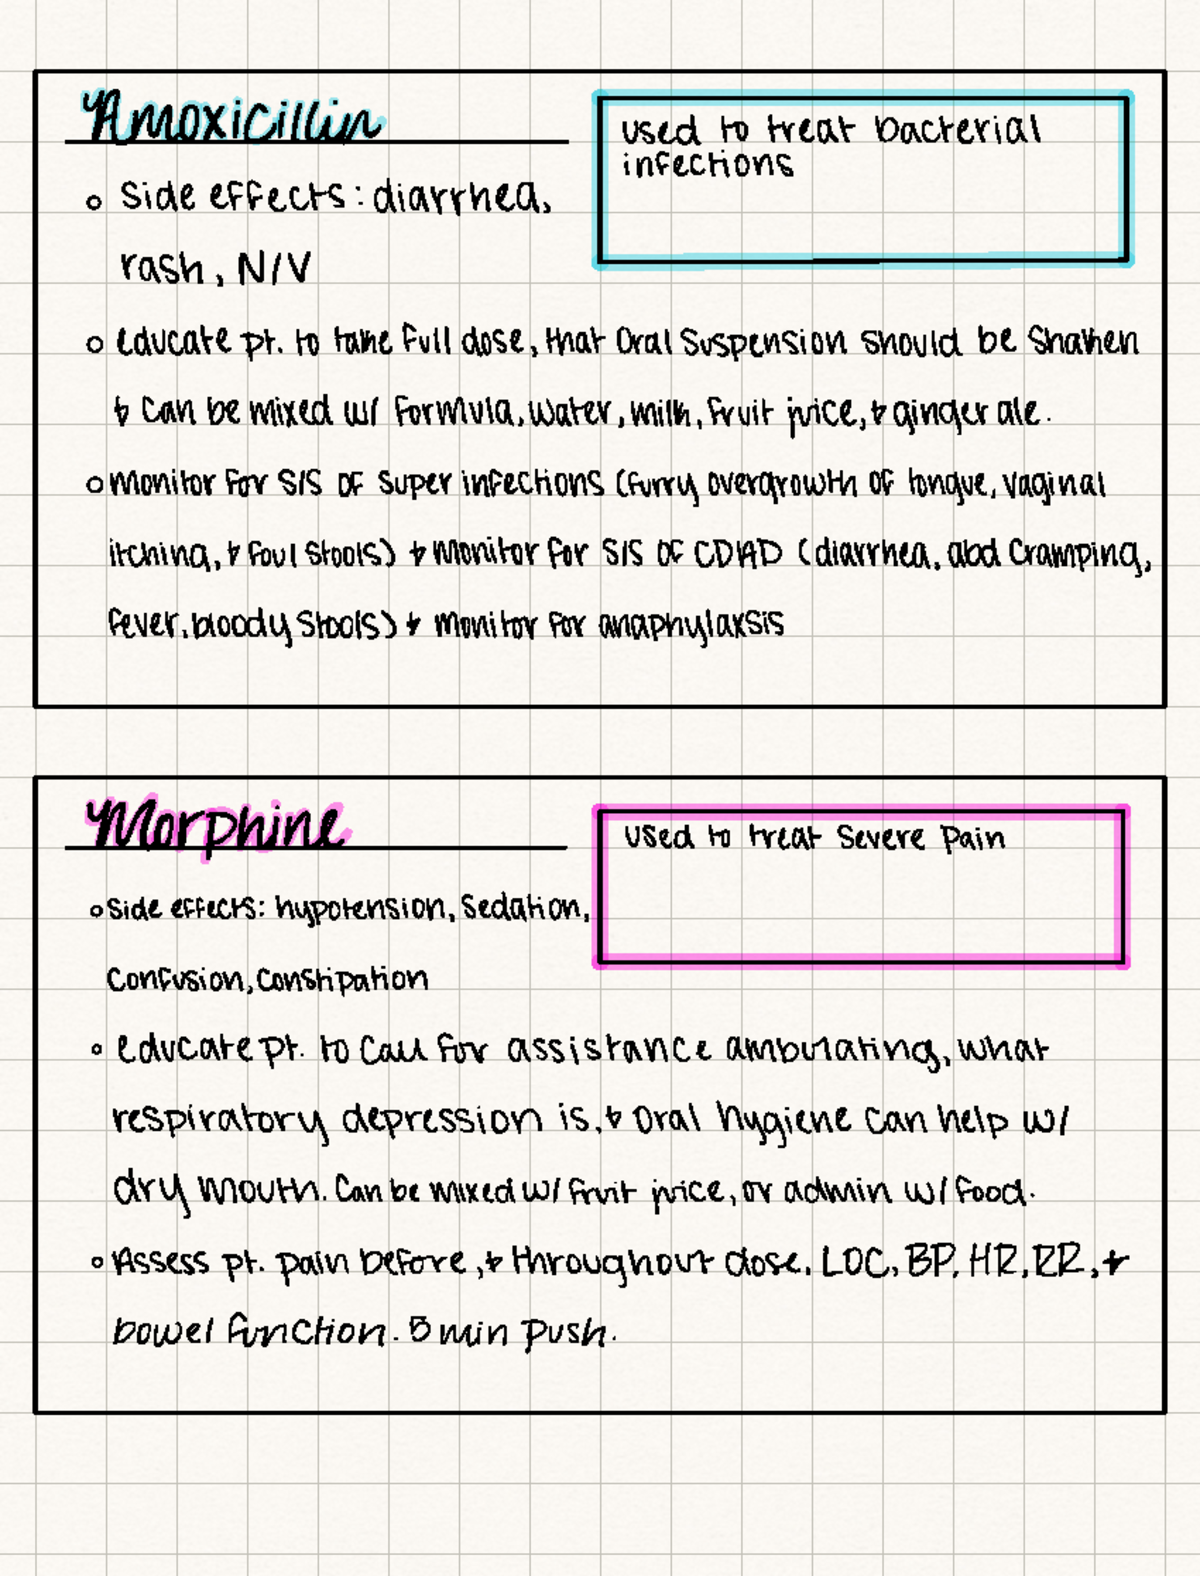 Amoxicillin
used to treat bacterial
infections
Side effects: diarrhea,
rash, N/V
educate pt. to take full dose, that Oral Suspension should be Shaken
& Can be mixed w/ formula, water, milk, fruit juice, & ginger ale.
monitor for S/S OF super infections (furry overgrowth OF tongue, vaginal
itching, & foul stools) & monitor for S/S OF CDAD (diarrhea, abd Cramping,
fever, bloody Stools) & monitor for anaphylaxsis
Morphine
used to treat severe Pain
Side effects: hypotension, Sedation,
Confusion, Constipation
educate pt. to Call for assistance ambulating, what
respiratory depression is, & Oral hygiene can help w/
dry mouth. Can be mixed w/ fruit juice, or admin w/ food.
Assess pt. pain before, & throughout dose, LOC, BP, HR, RR, &
bowel function. 5 min Push.